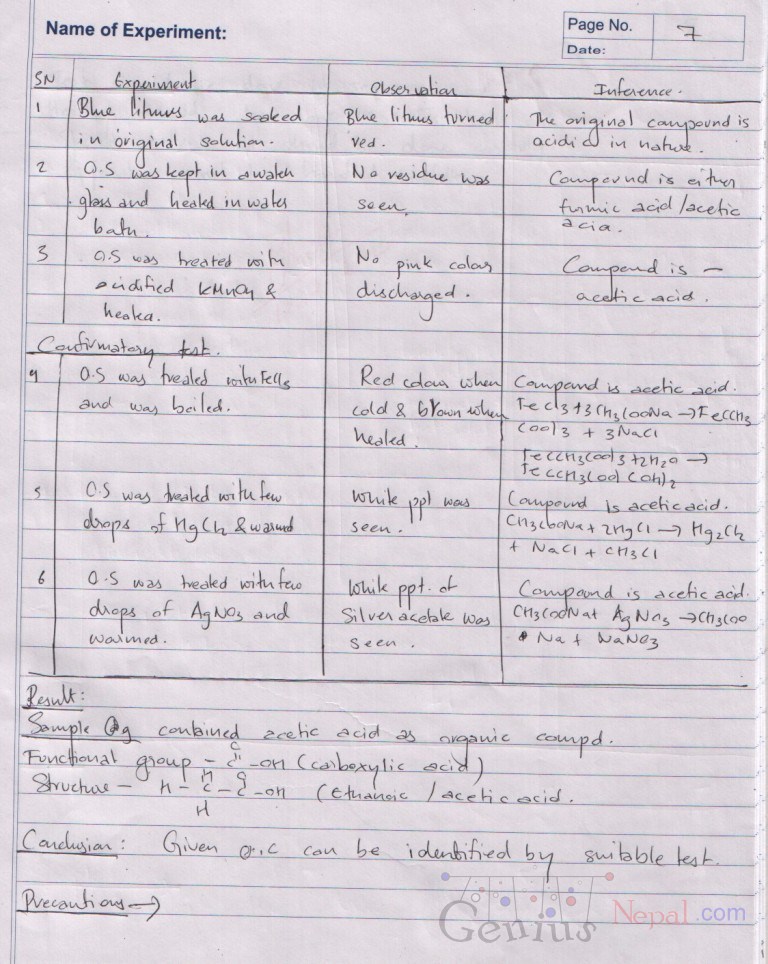 Name of Experiment:
Page No. 7
Date:
SN Experiment Observation Inference.
1 Blue litmus was soaked in original solution. Blue litmus turned red. The original compound is acidic in nature.
2 O.S was kept in a watch glass and heated in water bath. No residue was seen. Compound is either formic acid/acetic acid.
3 O.S was treated with acidified KMnO4 & heated. No pink colour discharged. Compound is – acetic acid.
Confirmatory test.
4 O.S was treated with FeCl3 and was boiled. Red colour when cold & brown when heated. Compound is acetic acid.
FeCl3+3CH3COONa →Fe(CH3
COO)3 + 3NaCl
Fe(CH3COO)3+2H2O →
Fe(CH3COO)(OH)2
5 O.S was treated with few drops of HgCl2 & warmed White ppt was seen. Compound is acetic acid.
CH3COONa+ 2HgCl → Hg2Cl2
+ NaCl + CH3Cl
6 O.S was treated with few drops of AgNO3 and warmed. White ppt. of Silver acetate was seen. Compound is acetic acid.
CH3COONa+ AgNO3 →CH3COO
Na + NaNO3
Result:
Sample combined acetic acid as organic compd.
Functional group – C -OH (carboxylic acid)
Structure – H – C – C -OH (Ethanoic /acetic acid.
H
Conclusion: Given o.c can be identified by suitable test.
Precautions →
Genius Nepal.com